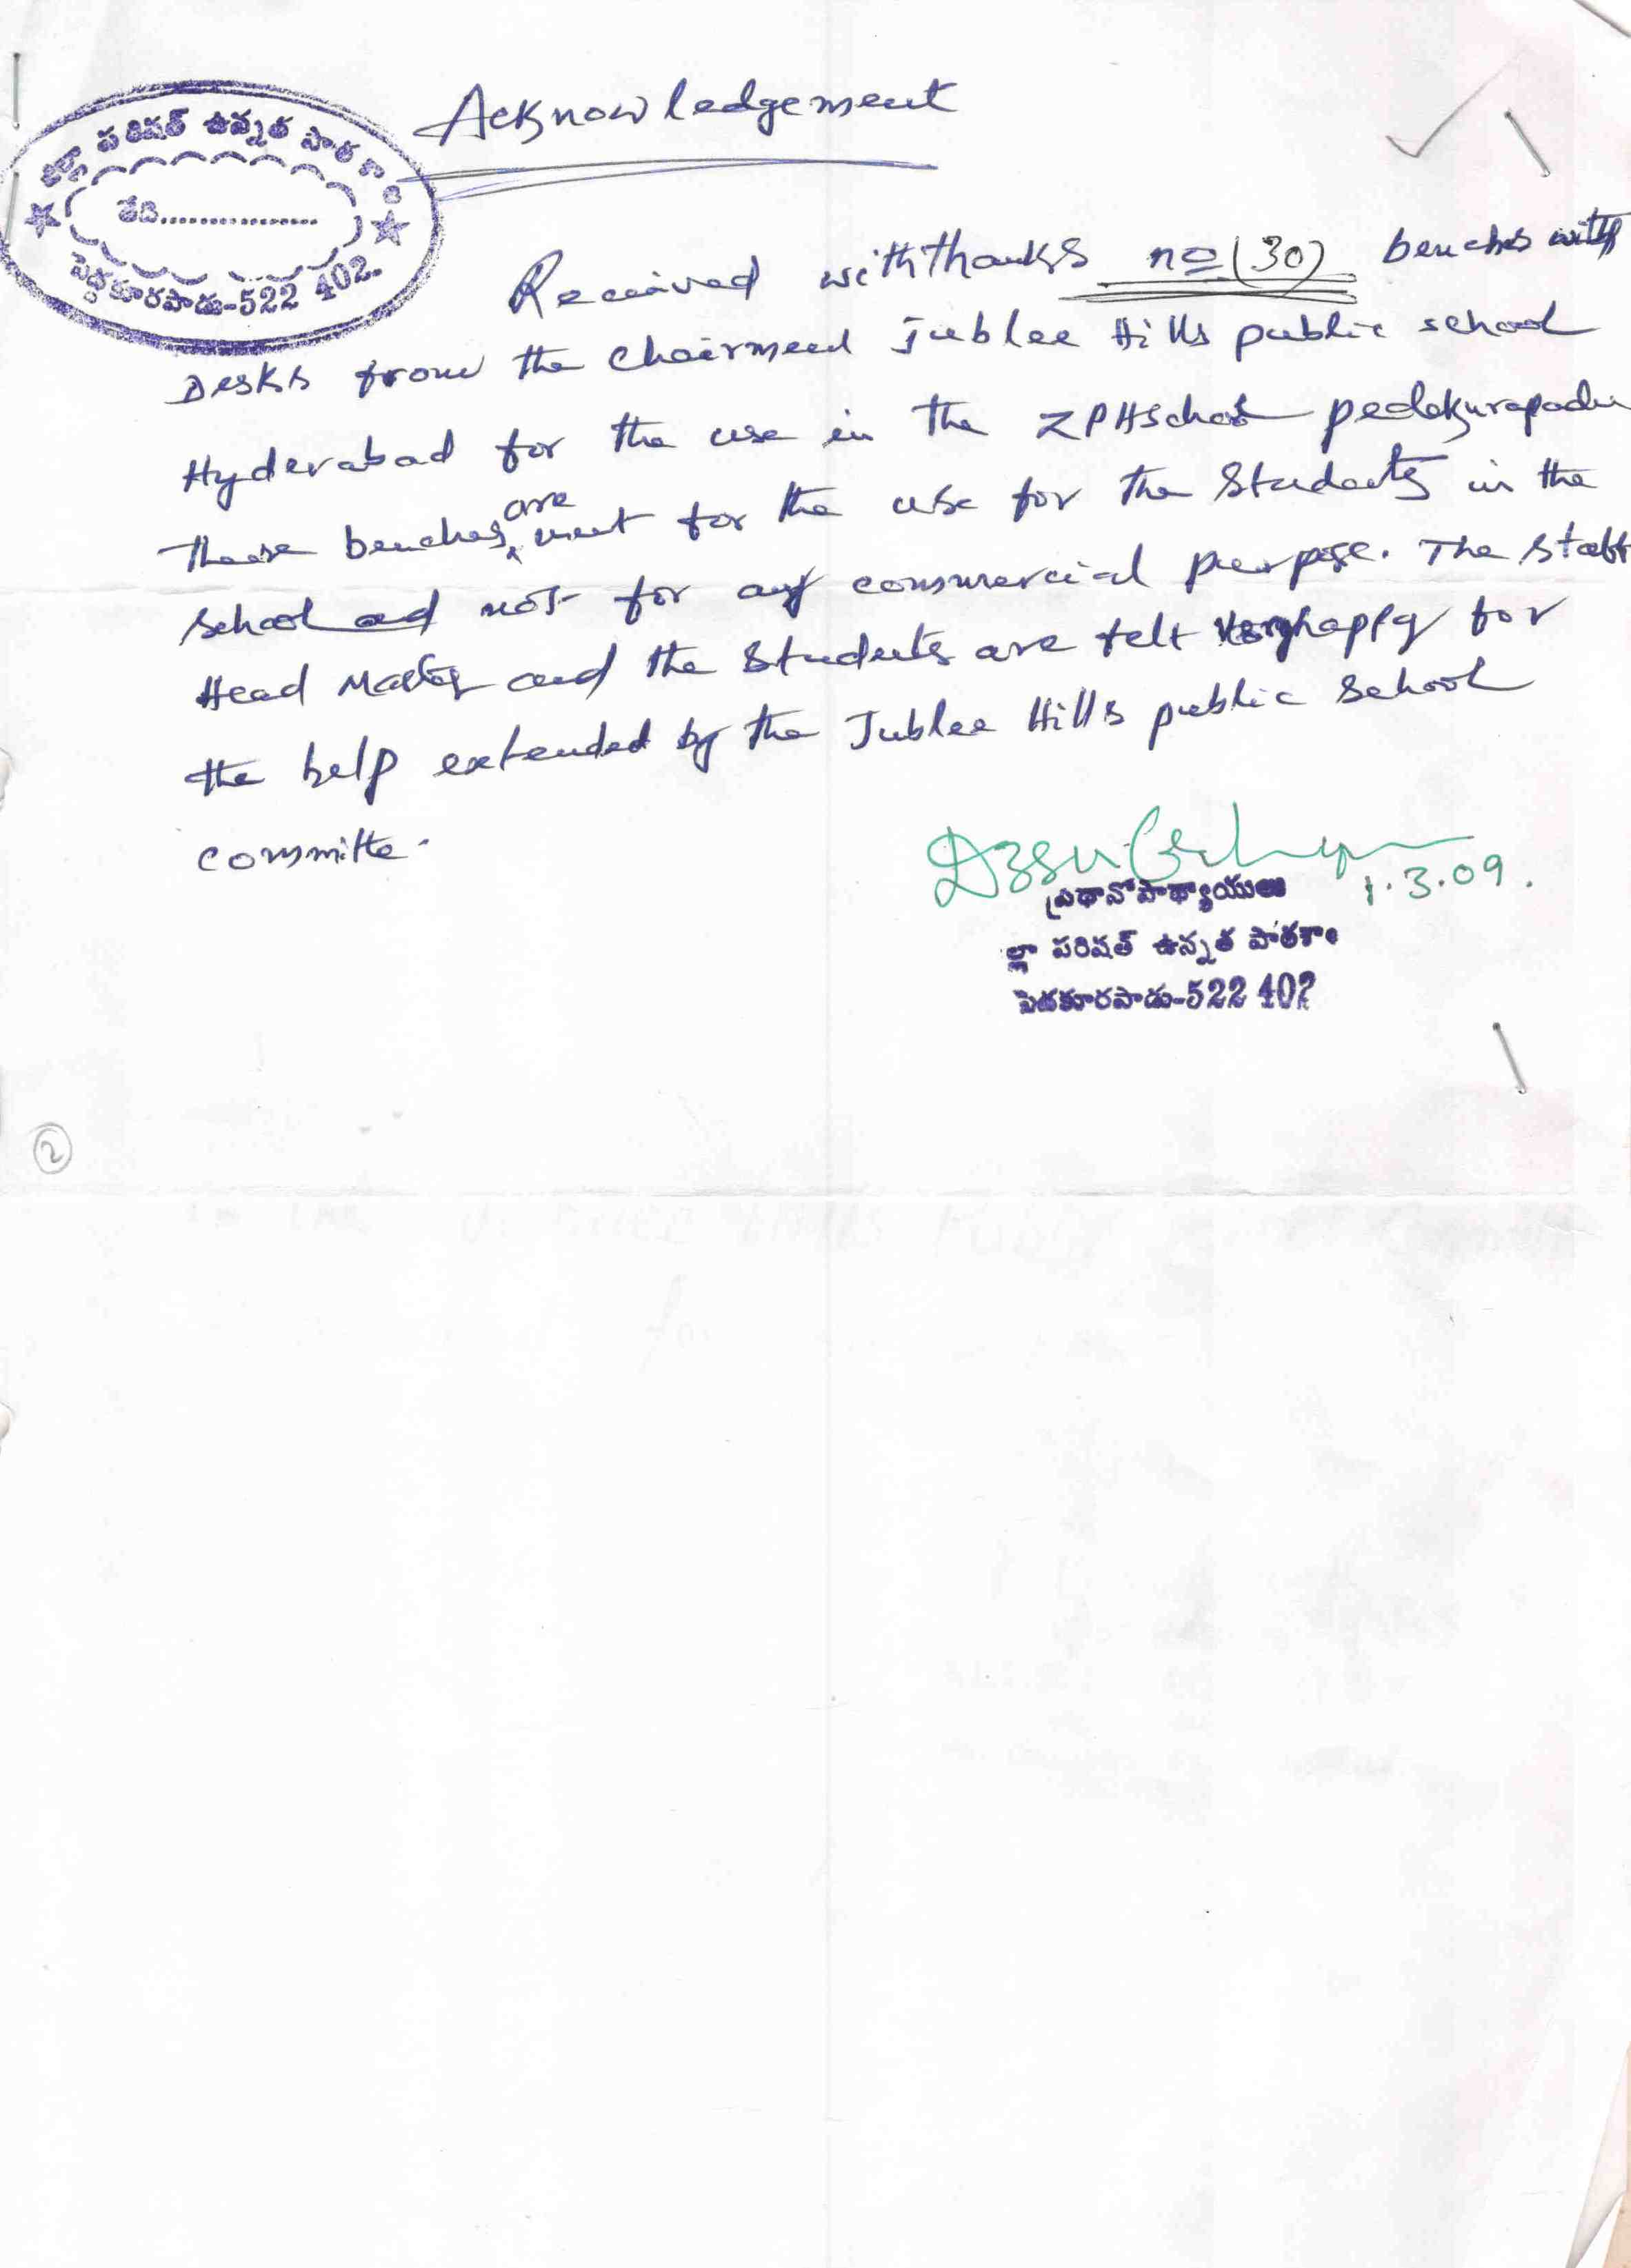 Acknowledgement
జిల్లా పరిషత్ ఉన్నత పాఠశాల
తేది................
పెదకూరపాడు-522 402.
Received with thanks no (30) benches with
Desks from the Chairmeen Jublee Hills public school
Hyderabad for the use in the ZPHSchool pedakurapadu
These benches are ment for the use for the Students in the
School and not for any commercial purpose. The staff
Head Master and the Students are felt very happy for
the help extended by the Jublee Hills public School
committe.
1.3.09.
ప్రధానోపాధ్యాయులు
ల్లా పరిషత్ ఉన్నత పాఠశాల
పెదకూరపాడు-522 402
2